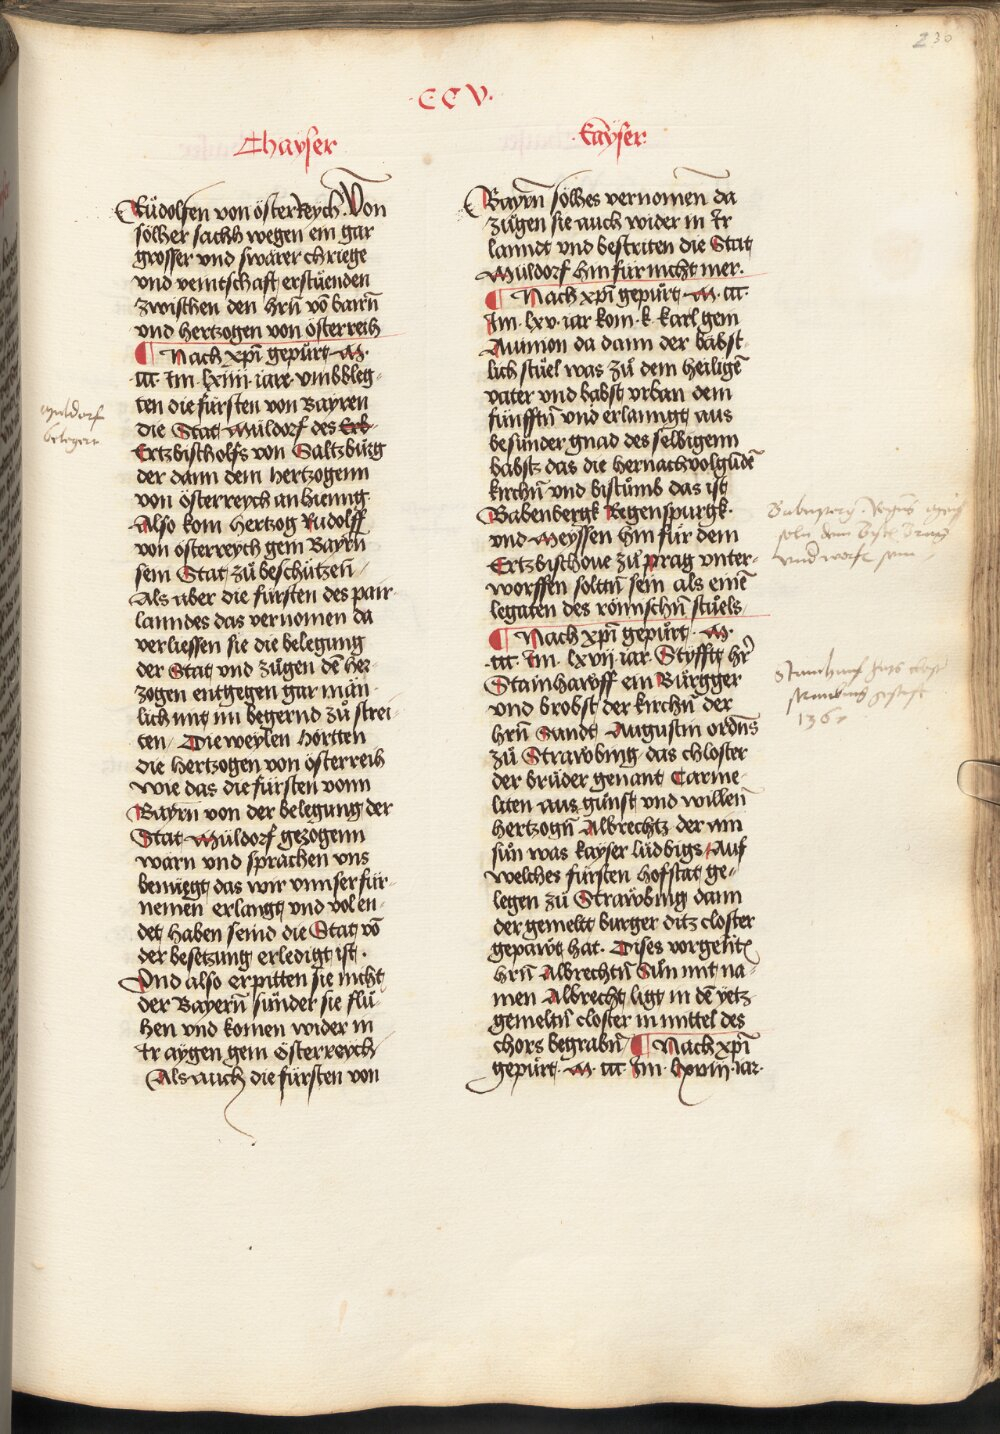 230
.CCV.
Chayser
Rüdolfen von österreych. Von
sölher sachh wegen ein gar
grosser und swärer chriege
und veintschaft erstüenden
zwischen den hrñ vō bairñ
und hertzogen von österreih
¶ Nach xp̄i gepürt M.
ccc Im lxiiii iare umbbleg-
ten die fürsten von Bayren
die Stat Müldorf des Erb-
Ertzbischolfs von Saltzbürg
der dann dem hertzogenn
von österreych anhienng
Also kom hertzog Rudolff
von österreych gem Bayrn
sein Stat zü beschützeñ
Als aber die fürsten des pair-
lanndes das vernomen da
verliessen sie die belegung
der Stat und zügen dē her-
zogen entgegen gar män-
lich mit im begernd zü strei-
ten / Die weylen hortten
die hertzogen von österreih
wie das die fürsten vonn
Bayrñ von der belegung der
Stat Müldorf gezogenn
warn und sprachen uns
benüegt das wir unnser für-
nemen erlangt und volen-
det haben seind die Stat vō
der besetzung erledigt ist.
Und also erpitten sie nicht
der Bayerñ sünder sie flü-
hen und komen wider in
Ir aygen gem österreych
Als auch die fürsten von
müldorf
belegert
Kayser
Bayrñ sölhes vernomeñ da
zügen sie auch wider in Ir
lanndt und bestriten die Stat
Müldorf hinfür nicht mer.
¶ Nach xp̄i gepürt M. ccc.
Im. lxv. iar kom. k. karl gem
Avinion da dann der babst-
lich stüel was zü dem heiligē
vater und babst urban dem
fünfftñ und erlanngt aus
besunder gnad des selbigenn
babstz das die hernachvolgūdē
kirchñ und bistümb das ist
Babenbergk Regenspurgk.
und Meyssen hinfür dem
Ertzbischove zü prag unter-
worffen soltñ sein als einē
legaten des römischñ stüels
¶ Nach xp̄i gepürt. M.
ccc. Im. lxvii iar Styfftt hr̄
Stainharwff ein Bürgger
und brobst der kirchñ der
hrñ Sandt Augustin ordñs
zü Strawbing das chloster
der brüder genant Carme-
liten aus günst und willeñ
hertzogñ Albrechtz der ain
sün was kayser lüdbigs Auf
welches fürsten hofstat ge-
legen zü Strawbing dann
der gemelt burger ditz closter
gepawt hat. Dises vorgent
hrñ Albrechtñ Sün mit na-
men Albrecht ligt in dē yetz-
gemeltñ closter in mittel des
chors begrabñ ¶ Nach xp̄i
gepürt. M. ccc. Im. lxviii. iar.